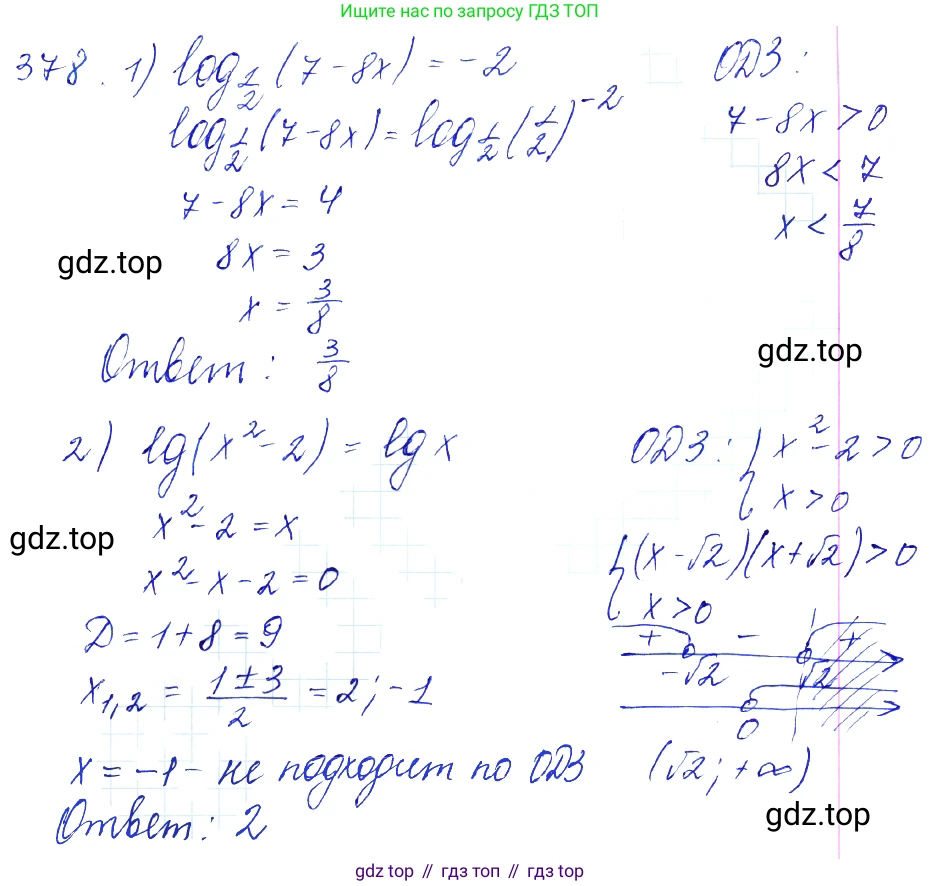 Ищите нас по запросу ГДЗ ТОП
378. 1) log_{1/2} (7-8x) = -2
log_{1/2} (7-8x) = log_{1/2} (1/2)^{-2}
7-8x = 4
8x = 3
x = 3/8
Ответ: 3/8
ОДЗ:
7-8x > 0
8x < 7
x < 7/8
gdz.top
gdz.top
2) lg(x²-2) = lg x
x²-2 = x
x²-x-2 = 0
D = 1+8 = 9
x_{1,2} = (1±3)/2 = 2; -1
x = -1 - не подходит по ОДЗ
Ответ: 2
gdz.top
ОДЗ: { x²-2 > 0
x > 0
{ (x-√2)(x+√2) > 0
x > 0
+ - +
-√2 √2
0
(√2; +∞)
gdz.top
gdz.top // гдз топ // гдз.топ